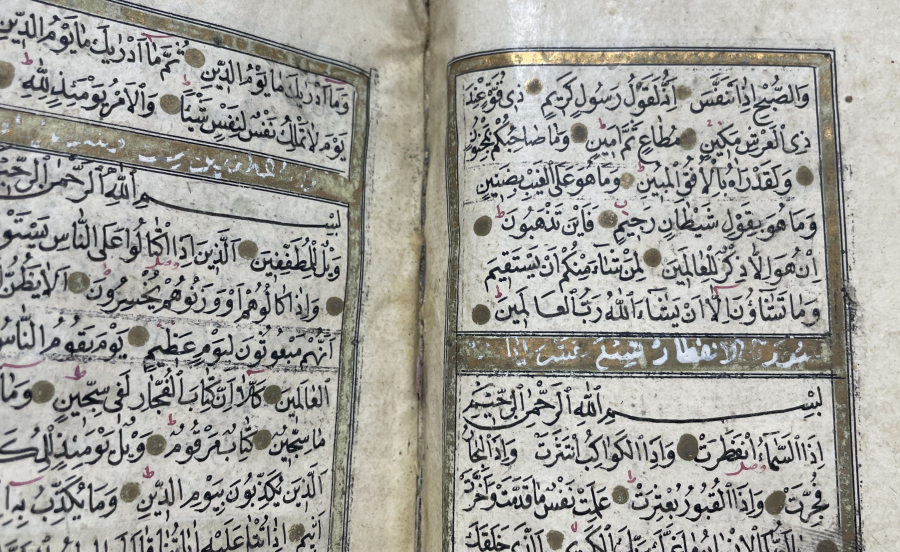 وَالصُّبْحِ إِذَا تَنَفَّسَ إِنَّهُ لَقَوْلُ رَسُولٍ كَرِيمٍ ذِى قُوَّةٍ عِنْدَ
ذِى الْعَرْشِ مَكِينٍ مُطَاعٍ ثَمَّ أَمِينٍ وَمَا صَاحِبُكُمْ بِمَجْنُونٍ
وَلَقَدْ رَاٰهُ بِالْاُفُقِ الْمُبِينِ وَمَا هُوَ عَلَى الْغَيْبِ بِضَنِينٍ
وَمَا هُوَ بِقَوْلِ شَيْطَانٍ رَجِيمٍ فَاَيْنَ تَذْهَبُونَ
اِنْ هُوَ اِلَّا ذِكْرٌ لِلْعَالَمِينَ لِمَنْ شَاءَ مِنْكُمْ اَنْ يَسْتَقِيمَ
وَمَا تَشَاؤُنَ اِلَّا اَنْ يَشَاءَ اللهُ رَبُّ الْعَالَمِينَ
سورة الانفطار تسع عشرة
بِسْمِ اللهِ الرَّحْمٰنِ الرَّحِيمِ
اِذَا السَّمَاءُ انْفَطَرَتْ وَاِذَا الْكَوَاكِبُ انْتَثَرَتْ وَاِذَا الْبِحَارُ
فُجِّرَتْ وَاِذَا الْقُبُورُ بُعْثِرَتْ عَلِمَتْ نَفْسٌ مَا قَدَّمَتْ وَاَخَّرَتْ
الَّذِى خَلَقَكَ
وَمَا اَدْرٰيكَ مَا يَوْمُ الدِّينِ ثُمَّ مَا اَدْرٰيكَ مَا يَوْمُ الدِّينِ
يَوْمَ لَا تَمْلِكُ نَفْسٌ لِنَفْسٍ شَيْئًا وَالْاَمْرُ يَوْمَئِذٍ لِلّٰهِ
بِسْمِ اللهِ الرَّحْمٰنِ
وَيْلٌ لِلْمُطَفِّفِينَ اَلَّذِينَ اِذَا اكْتَالُوا عَلَى النَّاسِ
وَاِذَا كَالُوهُمْ اَوْ وَزَنُوهُمْ يُخْسِرُونَ اَلَا يَظُنُّ
اَنَّهُمْ مَبْعُوثُونَ لِيَوْمٍ عَظِيمٍ يَوْمَ يَقُومُ النَّاسُ
الْعَالَمِينَ كَلَّا اِنَّ كِتَابَ الْفُجَّارِ لَفِى سِجِّينٍ وَمَا
مَا سِجِّينٌ كِتَابٌ مَرْقُومٌ وَيْلٌ يَوْمَئِذٍ
اَلَّذِينَ يُكَذِّبُونَ بِيَوْمِ الدِّينِ وَمَا يُكَذِّبُ بِهِ
اَثِيمٍ اِذَا تُتْلٰى عَلَيْهِ اٰيَاتُنَا قَالَ